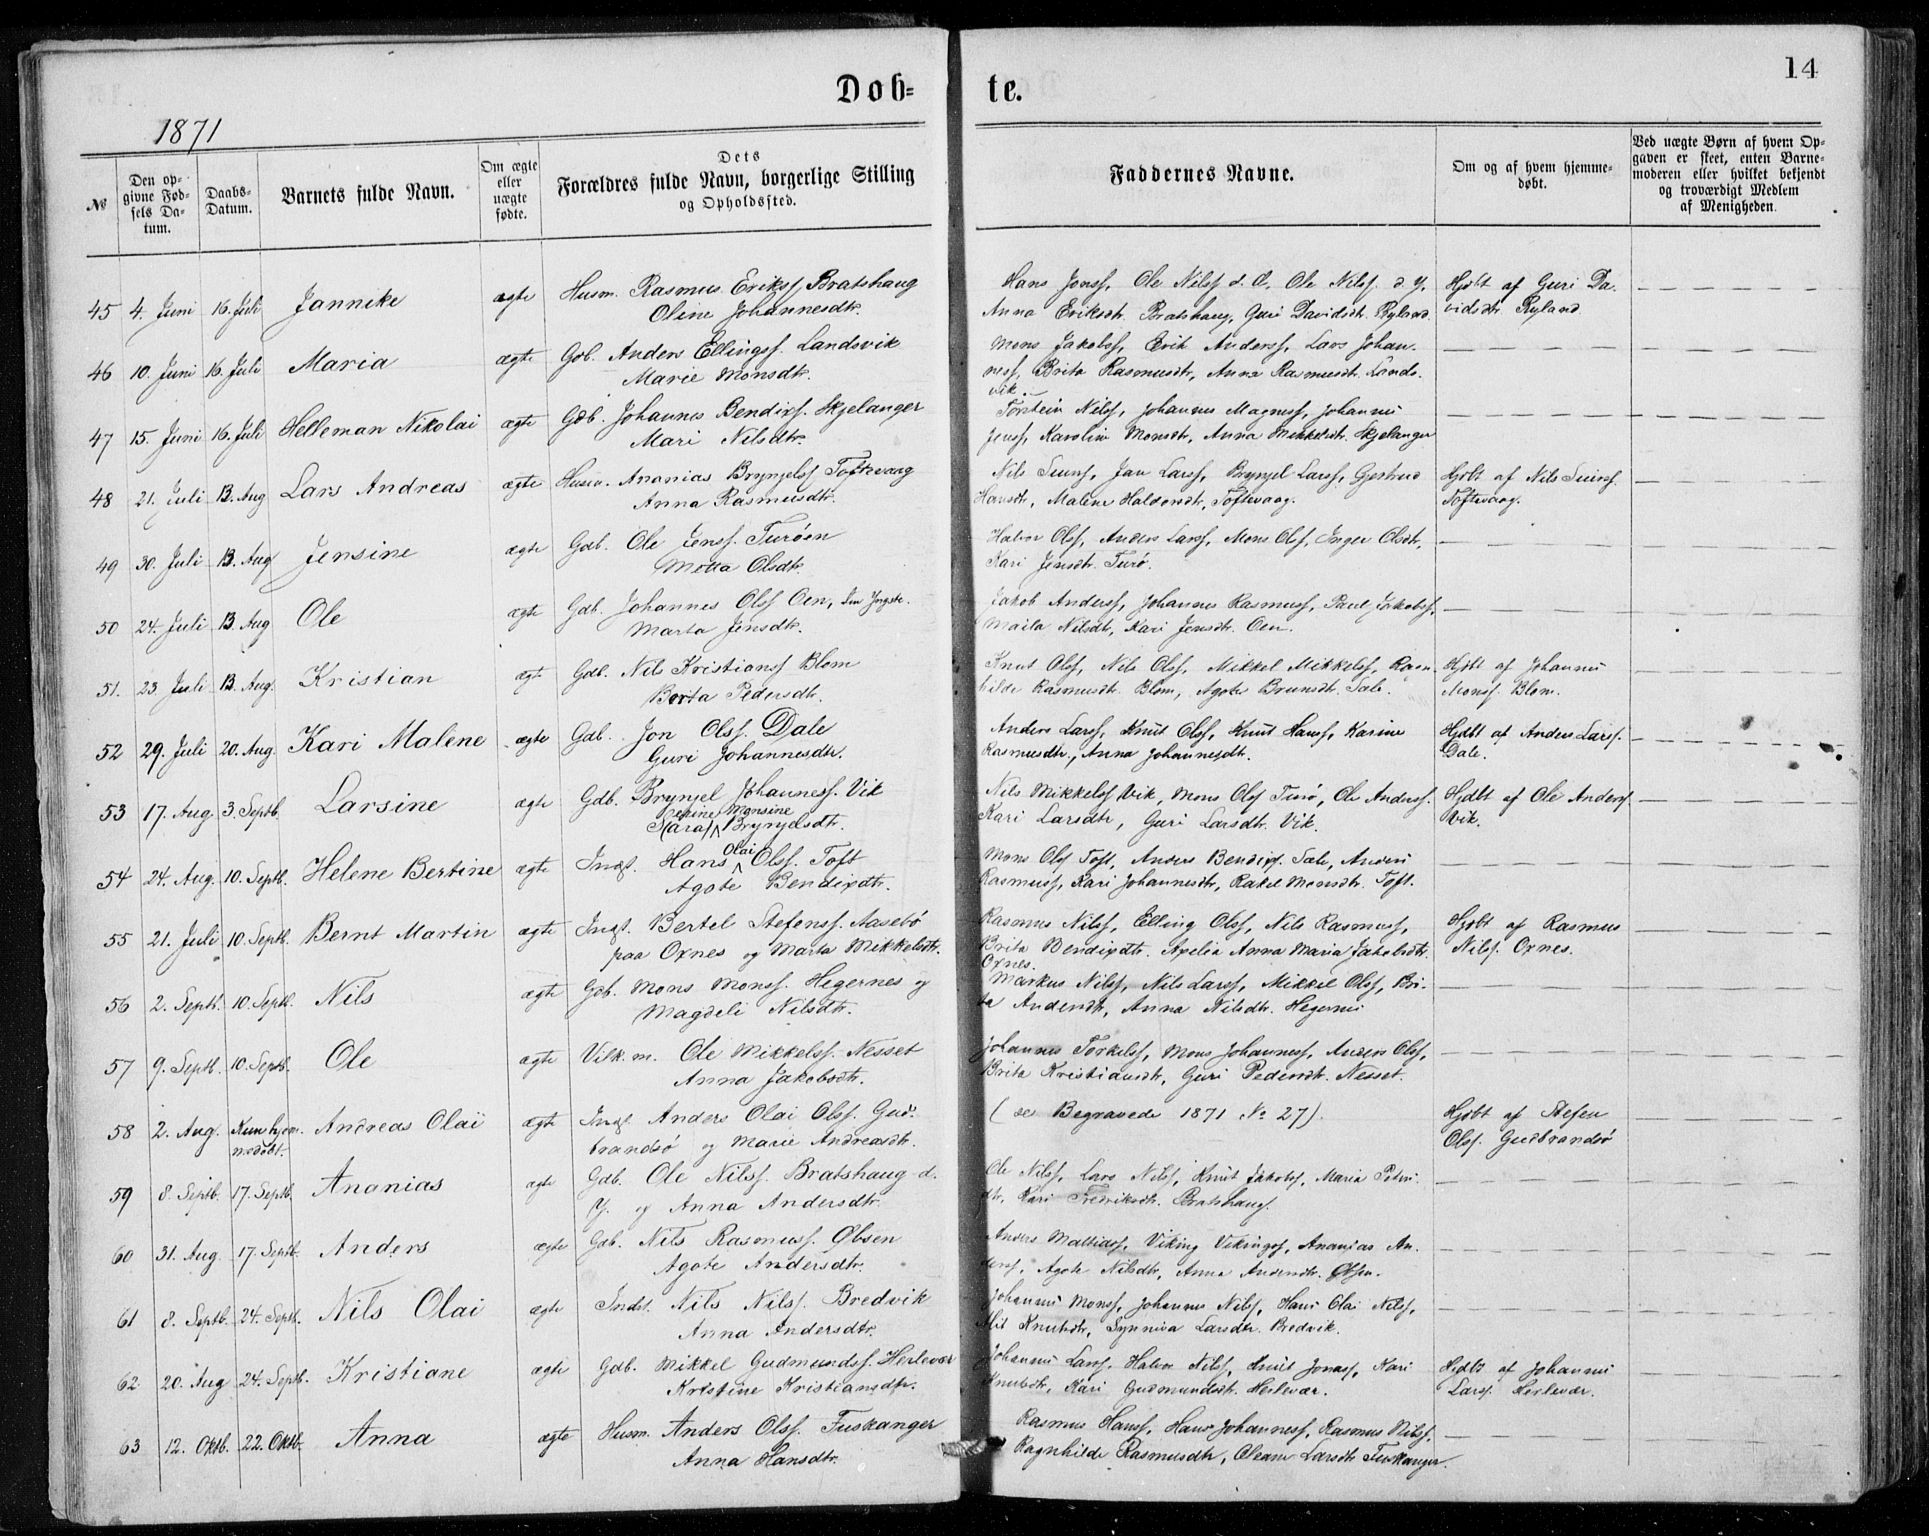 Døb=
te.
14
1871
№
Den op-
givne Fød-
sels Da-
tum.
Daabs-
Datum.
Barnets fulde Navn.
Om ægte
eller
uægte
fødte.
Dets
Forældres fulde Navn, borgerlige Stilling
og Opholdssted.
Faddernes Navne.
Om og af hvem hjemme-
døbt.
Ved uægte Børn af hvem Op-
gaven er skeet, enten Barne-
moderen eller hvilket bekjendt
og troværdigt Medlem
af Menigheden.
45 4. Juni 16. Juli Jannike ægte Husm. Rasmus Erikss. Bratshaug
Oline Johannesdtr.
Hans Jonss, Ole Nilss d. Æ, Ole Nilss d. Y,
Anna Eriksdtr. Bratshaug, Guri Davidsdtr. Ryland.
Hjdbt af Guri Da-
vidsdtr Ryland
46 10. Juni 16. Juli Maria ægte Gdb. Anders Ellingss. Landsvik
Marie Monsdtr.
Mons Jakobss, Erik Anderss, Lars Johan-
ness, Brita Rasmusdtr, Anna Rasmusdtr. Lands-
vik.
47 15. Juni 16. Juli Helleman Nikolai ægte Gdb. Johannes Bendixs. Skjelanger
Mari Nilsdtr.
Torstein Nilss, Johannes Magness, Johannes
Jenss, Karoline Monsdtr, Anna Mikkelsdtr. Skjelanger
48 21. Juli 13. Aug Lars Andreas ægte Husm. Ananias Brynjelss Toftevaag
Anna Rasmusdtr.
Nils Simss, Jan Larss, Brynjel Larss, Gjertrud
Hansdtr, Malene Haldorsdtr, Toftevaag.
Hjdbt af Nils Simss.
Toftevaag.
49 30. Juli 13. Aug Jensine ægte Gdb. Ole Jenss. Turøen
Motta Olsdtr.
Halvor Olss, Anders Larss, Mons Olss, Inger Olsdtr,
Kari Jensdtr. Turø.
50 24. Juli 13. Aug Ole ægte Gdb. Johannes Olss Oen, den Yngste.
Marta Jensdtr.
Jakob Anderss, Johannes Rasmuss, Paul Jakobss,
Maila Nilsdtr, Kari Jensdtr. Oen.
51. 23. Juli 13. Aug. Kristian ægt Gdb. Nils Kristianss Blom
Berta Pedersdtr.
Knut Olss, Nils Olss, Mikkel Mikkelss, Ragn-
hilde Rasmusdtr. Blom, Agote Brunsdtr. Sæle.
Hjdbt af Johannes
Monss. Blom.
52 29. Juli 20. Aug. Kari Malene ægte Gdb. Jon Olss. Dale
Guri Johannesdtr.
Anders Larss, Knut Olss, Knut Hanss, Karine
Rasmusdtr., Anna Johannesdtr.
Hjdbt af Anders Larss.
Dale.
53 17. Aug 3. Septb. Larsine ægte Gdb. Brynjel Johanness. Vik
Monsine
Brynjelsdtr.
Nils Mikkelss Vik, Mons Olss Turø, Ole Anderss.
Kari Larsdtr, Guri Larsdtr. Vik.
Hjdbt af Ole Anderss
Vik.
54 24. Aug. 10. Septb. Helene Bertine ægte Indst. Hans Olai Olss. Toft
Agote Bendixdtr.
Mons Olss Toft, Anders Bendixs. Sæle, Anders
Rasmuss, Kari Johannesdtr, Rakel Monsdtr. Toft.
55 21. Juli 10. Septb. Bernt Martin ægte Indst. Bertel Stefenss. Aasebø
paa Oxnes og Marta Mikkelsdtr.
Rasmus Nilss, Elling Olss, Nils Rasmuss,
Brita Bendixdtr. Apelia Anna Maria Jakobsdtr.
Oxnes.
Hjdbt af Rasmus
Nilss. Oxnes.
56 2. Septb. 10. Septb. Nils ægte Gdb. Mons Monss. Hegernes og
Magdeli Nilsdtr.
Markus Nilss, Nils Larss, Mikkel Olss, Bri-
ta Andersdtr, Anna Nilsdtr. Hegernes
57 9. Septb. 10. Septb. Ole ægte Vilk.m. Ole Mikkelss. Nesset
Anna Jakobsdtr.
Johannes Torkelss, Mons Johanness, Anders Olss,
Brita Kristiansdtr, Guri Pedersdtr. Nesset.
58 2. Aug. Kun hjem-
medøbt. Andreas Olai ægte Indst Anders Olai Olss. Gud-
brandsø og Marie Andreasdtr.
(se Begravede 1871 № 27).
Hjdbt af Stefen
Olss. Gudbrandsø
59 8. Septb. 17. Septb. Ananias ægte Gdb. Ole Nilss. Bratshaug d.
Y. og Anna Andersdtr.
Ole Nilss, Lars Nilss, Knut Jakobss, Maria Peders-
dtr, Kari Fredriksdtr. Bratshaug.
60 31. Aug. 17. Septb. Anders ægte Gdb. Nils Rasmuss. Øbsen
Agote Andersdtr.
Anders Mattiass, Viking Vikingss, Ananias An-
derss, Agote Nilsdtr, Anna Andersdtr. Øbsen.
61 8. Septb. 24. Septb. Nils Olai ægte Indst. Nils Nilss. Bredvik
Anna Andersdtr.
Johannes Monss, Johannes Nilss, Hans Olai Nilss,
Knutsdtr, Synniva Larsdtr. Bredvik.
62 20. Aug 24. Septb. Kristiane ægte Gdb. Mikkel Gudmundss. Herlevær
Kristine Kristiansdtr.
Johannes Larss. Halvor Nilss, Knut Jonass, Kari
Knutsdtr, Kari Gudmundsdtr. Herlevær.
Hjdbt af Johannes
Larss. Herlevær.
63 12. Oktb. 22. Oktb. Anna ægte Husm. Anders Olss. Fuskanger
Anna Hansdtr.
Rasmus Hanss, Hans Johanness, Rasmus Nilss,
Ragnhilde Rasmusdtr, Oleane Larsdtr Fuskanger.